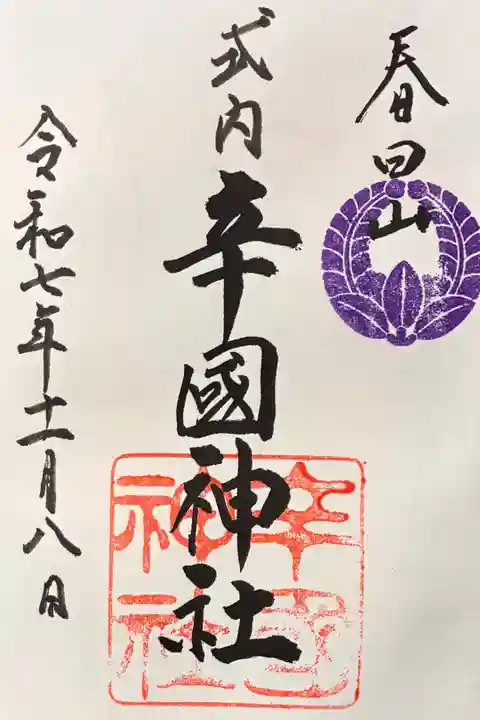 春日山
式内辛國神社
令和七年十一月八日
辛国神社